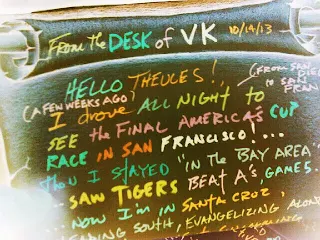 From the DESK of VK 10/14/13
HELLO THEULES!
(FROM
SAN
DIEGO
to SAN
FRAN
(A FEW WEEKS AGO)
I drove ALL NIGHT to
SEE the FINAL AMERICA'S CUP
RACE IN SAN FRANCISCO!...
I STAYED "IN the BAY AREA"
... SAW TIGERS BEAT A'S, GAMES.
NOW I'm in SANTA CRUZ,
SOUTH, EVANGELIZING ALONG